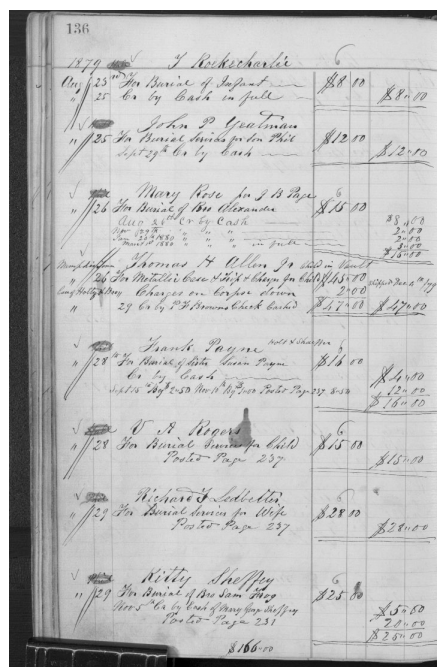 136
1879 T Rockecharlie 6
Aug 23rd For Burial of Infant $8 00
" 25 Cr by Cash in full $8 00
John P Yeatman
" 25 For Burial Services for Son Phil $12 00
Sept 29th Cr by Cash $12 00
Mary Rose for J B Page 6
" 26 For Burial of Bro Alexander $15 00
Aug 26th Cr by Cash $8 00
Nov " " " 2 00
Jan 20th 1880 " " " 2 00
1880 " " " in full 3 00
$15 00
Thomas H Allen Jr in Vault
26 For Metallic Case & Box & Charges for Child $45 00 Shipped Dec
Charges on Corpse down 2 00
" 29 Cr by P F Browns Check Cashed $47 00 $47 00
Frank Payne 6
" 28th For Burial of Sister Susan Payne $16 00
Cr by Cash $4 00
Sept 15th By $ 2.50 Nov By Posted Page 237 8.50 12 00
$16 00
V A Rogers 6
" 28 For Burial Services for Child $15 00
Posted Page 237 $15 00
Richard F Ledbetter 6
" 29 For Burial Services for Wife $28 00
Posted Page 237 $28 00
Kitty Sheffey 6
" 29 For Burial of Bro Sam $25 00
Nov 5th Cr by Cash of Sheffey $5 00
Posted Page 231 20 00
$25 00
$166 00